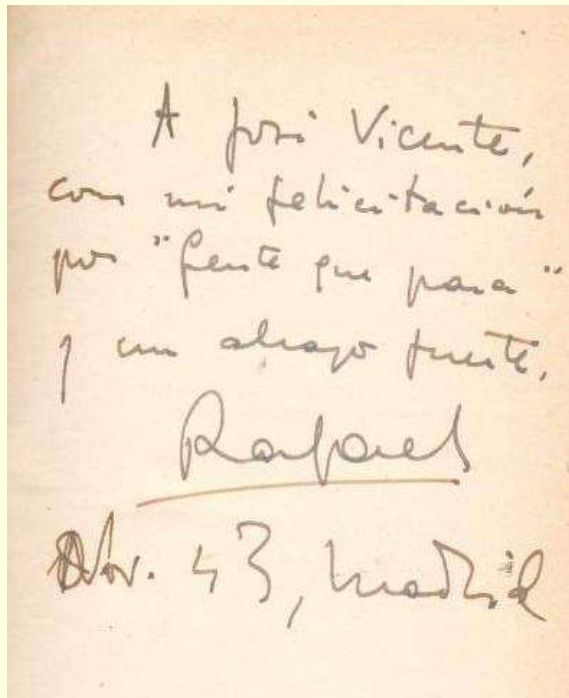 A José Vicente,
con mi felicitación
por "Gente que pasa"
y un abrazo fuerte.
Rafael
Nov. 43, Madrid